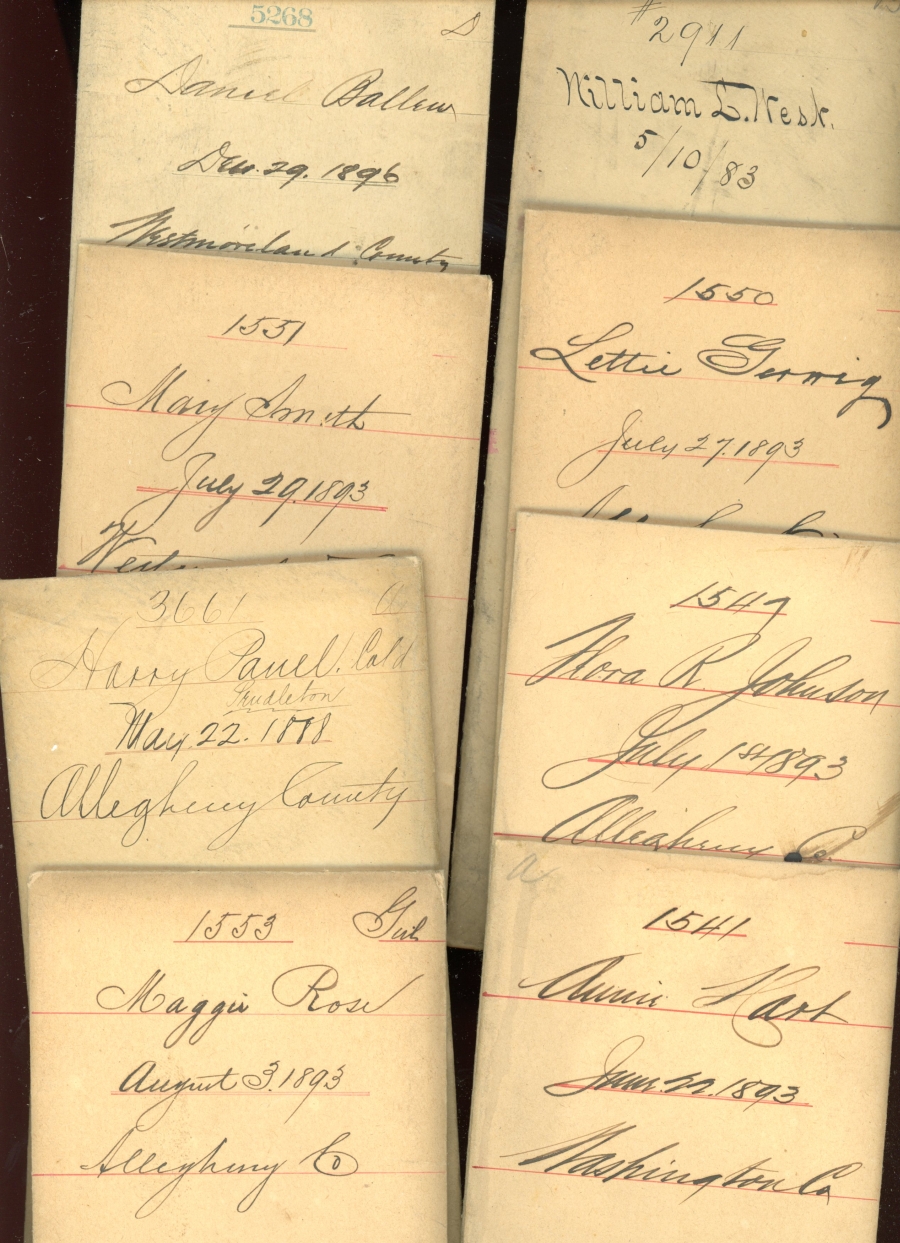 5268
D
Daniel Ballew
Dec. 29. 1896
Westmoreland County
#
2911
William L. West.
5/10/83
1551
Mary Smith
July 29. 1893
1550
Lettie Gerwig
July 27. 1893
3661
a
Harry Panel. Cold
Pendleton
May. 22. 1888
Allegheny County
1547
Flora R. Johnson
July 1st 1893
Allegheny Co.
1553
Girl
Maggie Rose
August 3. 1893
Allegheny Co
a
1541
Annie Hart
June. 22. 1893
Washington Co